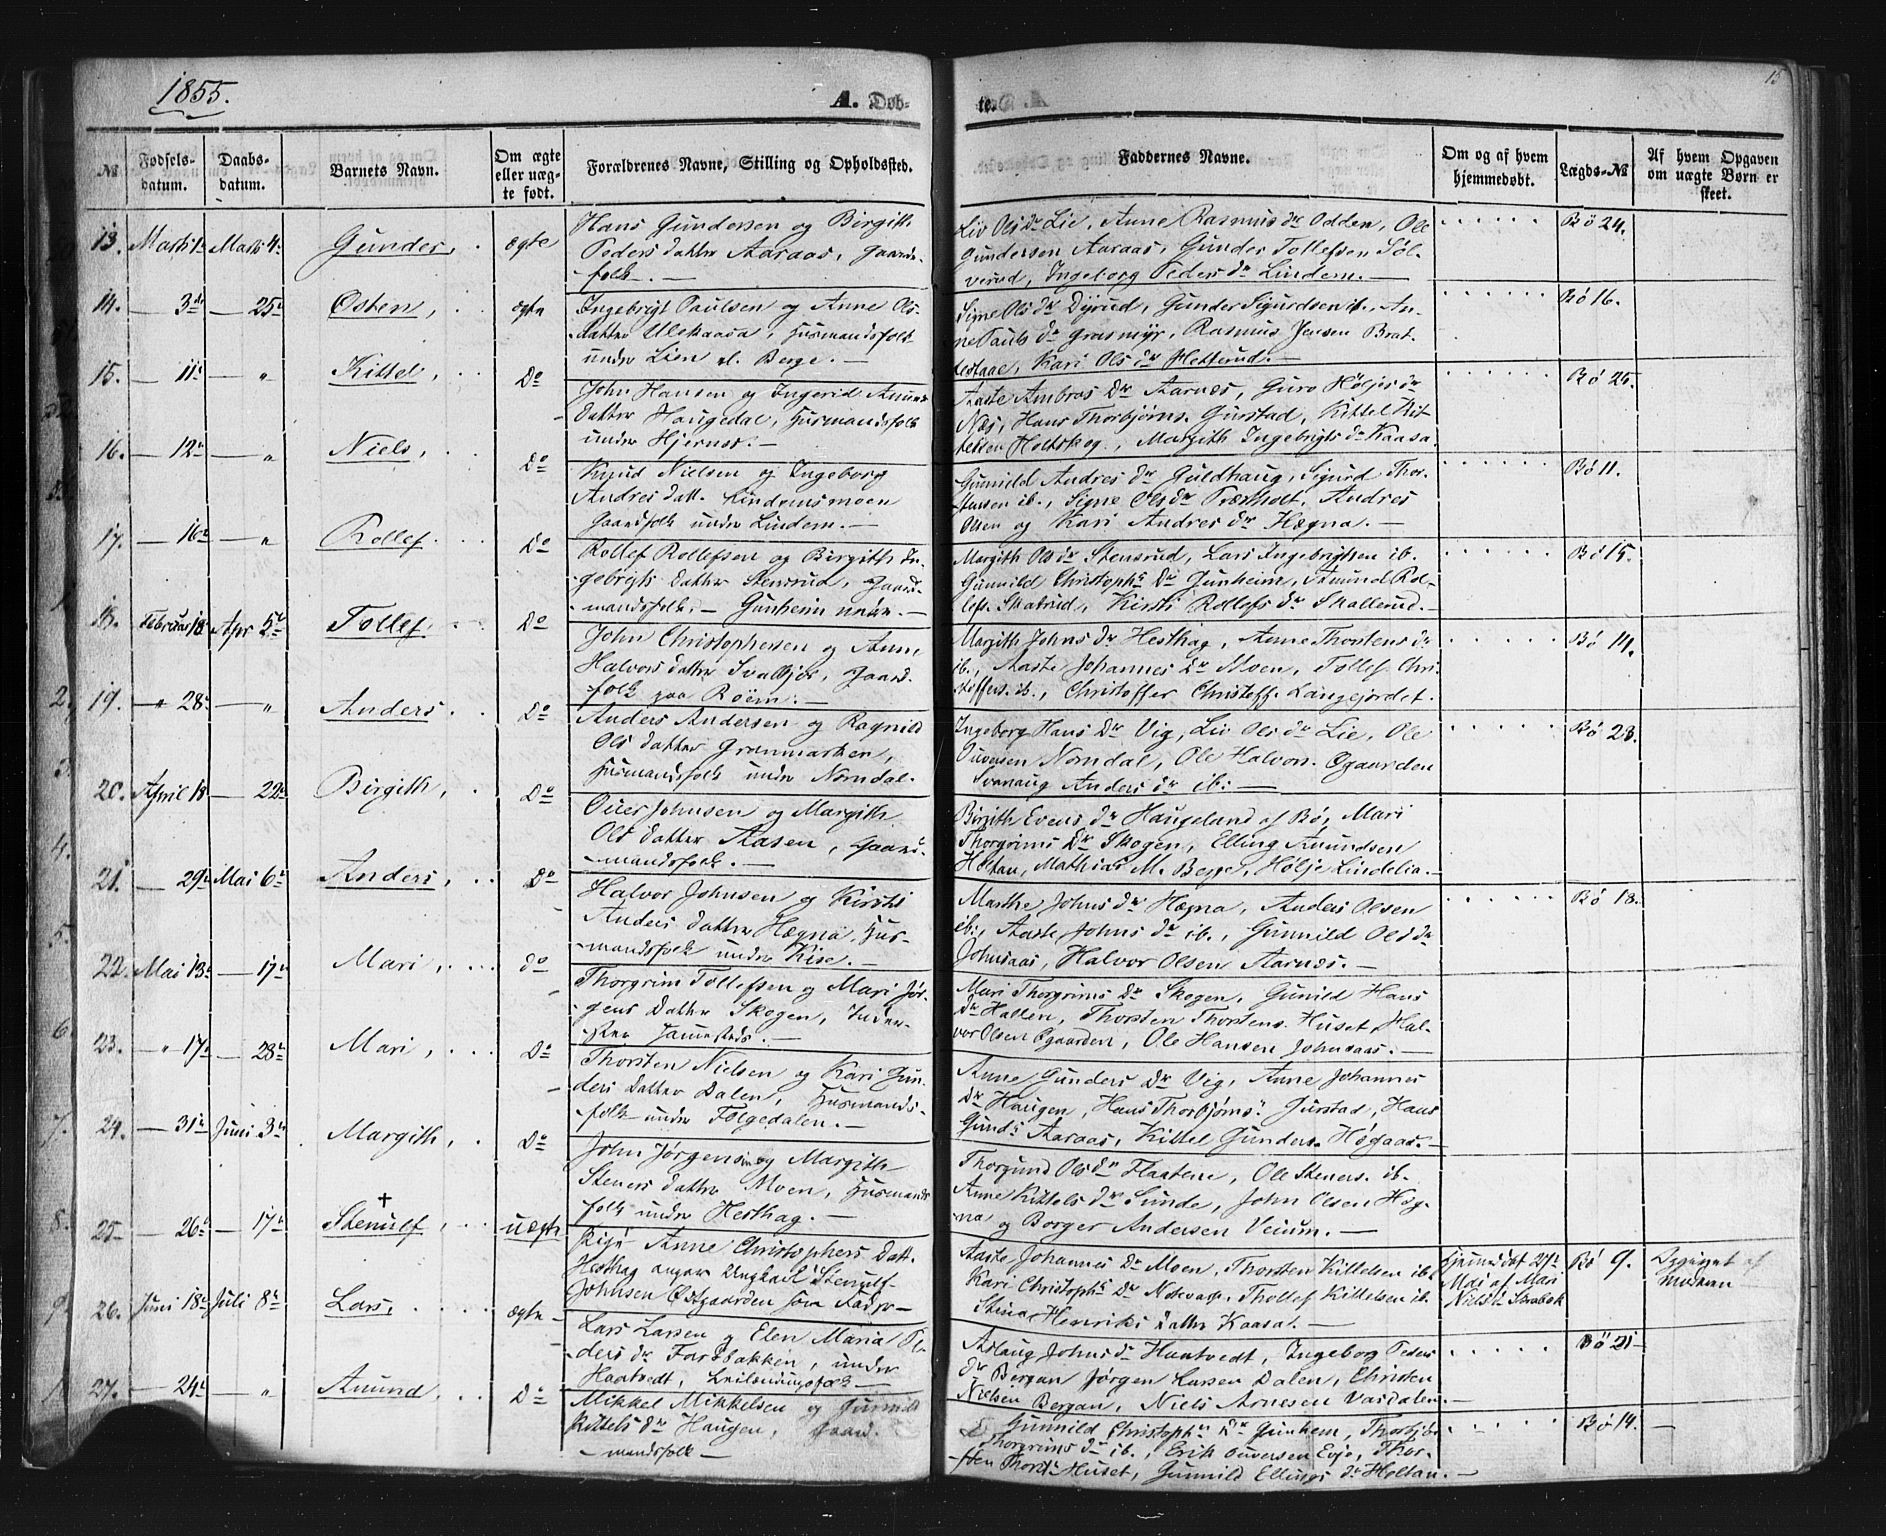 1855.
A. Døb-
te.
15
№
Fødsels-
datum.
Daabs-
datum.
Barnets Navn.
Om ægte
eller uæg-
te født.
Forældrenes Navne, Stilling og Opholdssted.
Faddernes Navne.
Om og af hvem
hjemmedøbt.
Lægds-№
Af hvem Opgaven
om uægte Børn er
skeet.
13. Marts 1 Marts 4 Gunder, ægte
Hans Gundersen og Birgith
Peders datter Aaraas, Gaard-
folk. —
Liv Ols dr Lie, Anne Rasmus dr Odden, Ole
Gundersen Aaraas, Gunder Tollefsen Søl-
verud, Ingeborg Peders dr Lindem. —
Bø 24.
14. — 3 — 25 Osten, ægte
Ingebrigt Paulsen og Anne Ols-
datter Ulskaasa, Husmandsfolk
under Lien el. Berge. —
Signe Ols dr Dyrud, Gunder Sigurdsen ib. An-
ne Pauls dr Grasmyr, Rasmus Jensen Brat-
testaae, Kari Ols dr Hetterud. —
Bø 16.
15. — 11 — " Kittel, Do
John Hansen og Ingerid Amund
datter Haugedal, Husmandsfolk
under Hjernes. —
Aaste Ambros dr Aarnes, Guro Høljes dr
Nes, Hans Thorbjørns. Gurstad, Kittel Kit-
telsen Holtskog, Margith Ingebrigts dr Kaasa.
Bø 25.
16. — 12 — " Niels, Do
Knud Nielsen og Ingeborg
Andres datt. Lindemsmoen
Gaardfolk under Lindem. —
Gunnild Andres dr Guldhaug, Sigurd Thor-
stensen ib., Signe Ols dr Trætholt, Andres
Olsen og Kari Andres dr Hægna. —
Bø 11.
17. — 16 — " Rollef. Do
Rollef Rollefsen og Birgith In-
gebrigts datter Stensrud, Gaard-
mandsfolk, — Gunheim nedr. —
Margith Ols dr Stensrud, Lars Ingebrigtsen ib.
Gunnild Christophs dr Gunheim, Amund Rol-
lefs. Skatrud, Kirsti Rollefs dr Skallerud. —
Bø 15.
18. Februar 18 Apr 5 Tollef Do
John Christophersen og Anne
Halvors datter Svalbjør, Gaard-
folk paa Roëim. —
Margith Johns dr Hesthag, Anne Thorstens dr
ib., Aaste Johannes dr Moen, Tollef Chri-
stoffers. ib., Christoffer Christoff. Langejordet.
Bø 14.
19. " 28 — " Anders. Do
Anders Andersen og Ragnild
Ols datter Grenmarken,
Husmandsfolk under Norndal.
Ingeborg Hans dr Vig, Liv Ols dr Lie, Ole
Ouversen Norndal, Ole Halvors. Ogaarden
Svanaug Anders dr ib: —
Bø 23.
20. April 18 — 22 Birgith, Do
Ouer Johnsen og Margith
Ols datter Aasen, Gaard-
mandsfolk. —
Birgith Evens dr Haugeland af Bø, Mari
Thorgrims dr Skogen, Elling Amundsen
Holtan, Mathias M. Berge, Hølje Lindelia.
21. — 29 Mai 6 Anders, Do
Halvor Johnsen og Kirsti
Anders datter Hægna, Hus-
mandsfolk under Kise. —
Marthe Johns dr Hægna, Anders Olsen
ib:, Aaste Johns dr ib., Gunnild Ols dr
Johnsaas, Halvor Olsen Aarnes. —
Bø 18.
22. Mai 13 — 17 Mari, do
Thorgrim Tollefsen og Mari Jør-
gens datter Skogen, Inder-
ster sammesteds. —
Mari Thorgrims dr Skogen, Gunild Hans
dr Hallen, Thorsten Thorstens. Huset, Hal-
vor Olsen Ogaarden, Ole Hansen Johnsaas. —
23. " 17 — 28 Mari, Do
Thorsten Nielsen og Kari Gun-
ders datter Dalen, Husmands-
folk under Folgedalen. —
Anne Gunders dr Vig, Anne Johannes
dr Haugen, Hans Thorbjørns. Gurstad, Hans
Gunds. Aaraas, Kittel Gunders. Høgaas. —
24. — 31 Juni 3 Margith, Do
John Jørgensen og Margith
Steners datter Moen, Husmands
folk under Hesthag. —
Thorgund Ols dr Flaatene, Ole Steners. ib.
Anne Kittels dr Sunde, John Olsen Hæg-
na og Borger Andersen Veium. —
25 — 26 — 17 + Stenulf, uægte
Pige Anne Christophers datt.
Hesthag angav Ungkarl Stenulf
Johnsen Østgaarden som Fader —
Aaste Johannes dr Moen, Thorsten Kittelsen ib.
Kari Christophs dr Notevarp, Thollef Kittelsen ib.
Stina Henriks datter Kaasa. —
Hjemmedøbt 27
Mai af Mari
Niels dr Strabok
Bø 9.
Opgivet af
Moderen
26. Juni 18 Juli 8 Lars, ægte
Lars Larsen og Elen Maria Pe-
ders dr Farsbakken, under
Haatvedt, Leilændingsfolk —
Aslaug Johns dr Haatvedt, Ingeborg Peders
dr Bergan Jørgen Larsen Dalen, Christen
Nielsen Bergan, Niels Arnesen Vardalen.
Bø 21
27. — 24 — " Amund, Do
Mikkel Mikkelsen og Gunnild
Kittels dr Haugen, Gaard-
mandsfolk —
Gunnild Christophs dr Gunheim, Thorbjør
Thorgrims dr ib., Erik Ouversen Evje, Thor-
sten Thorst. Huset, Gunnild Ellings dr Holtan. —
Bø 14.